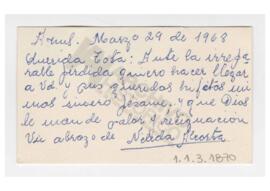 Marzo 29 de 1968
Querida Tota: Ante la irrepa-
rable pérdida quiero hacer llegar
a Vd. y sus queridos hijitos mi
mas sincero pésame y que Dios
le mande valor y resignación
Un abrazo de Nélida Acosta
1.1.3.1870